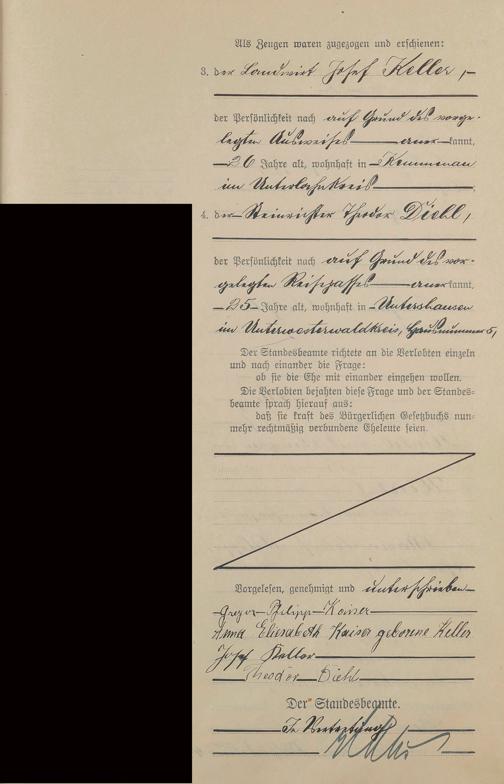 Als Zeugen waren zugezogen und erschienen:
3. der Landwirt Josef Keller,
der Persönlichkeit nach auf Grund des vorge-
legten Ausweises anerkannt,
26 Jahre alt, wohnhaft in Kemmenau
im Unterlahnkreis
4. der Steinrichter Theodor Diehl,
der Persönlichkeit nach auf Grund des vor-
gelegten Reisepasses anerkannt,
25 Jahre alt, wohnhaft in Untershausen
im Unterwesterwaldkreis, Hausnummer 5,
Der Standesbeamte richtete an die Verlobten einzeln
und nach einander die Frage:
ob sie die Ehe mit einander eingehen wollen.
Die Verlobten bejahten diese Frage und der Standes-
beamte sprach hierauf aus:
daß sie kraft des Bürgerlichen Gesetzbuchs nun-
mehr rechtmäßig verbundene Eheleute seien.
Vorgelesen, genehmigt und unterschrieben
Philipp Kaiser
Anna Elisabeth Kaiser geborene Keller
Josef Keller
Theodor Diehl
Der Standesbeamte.
In Vertretung